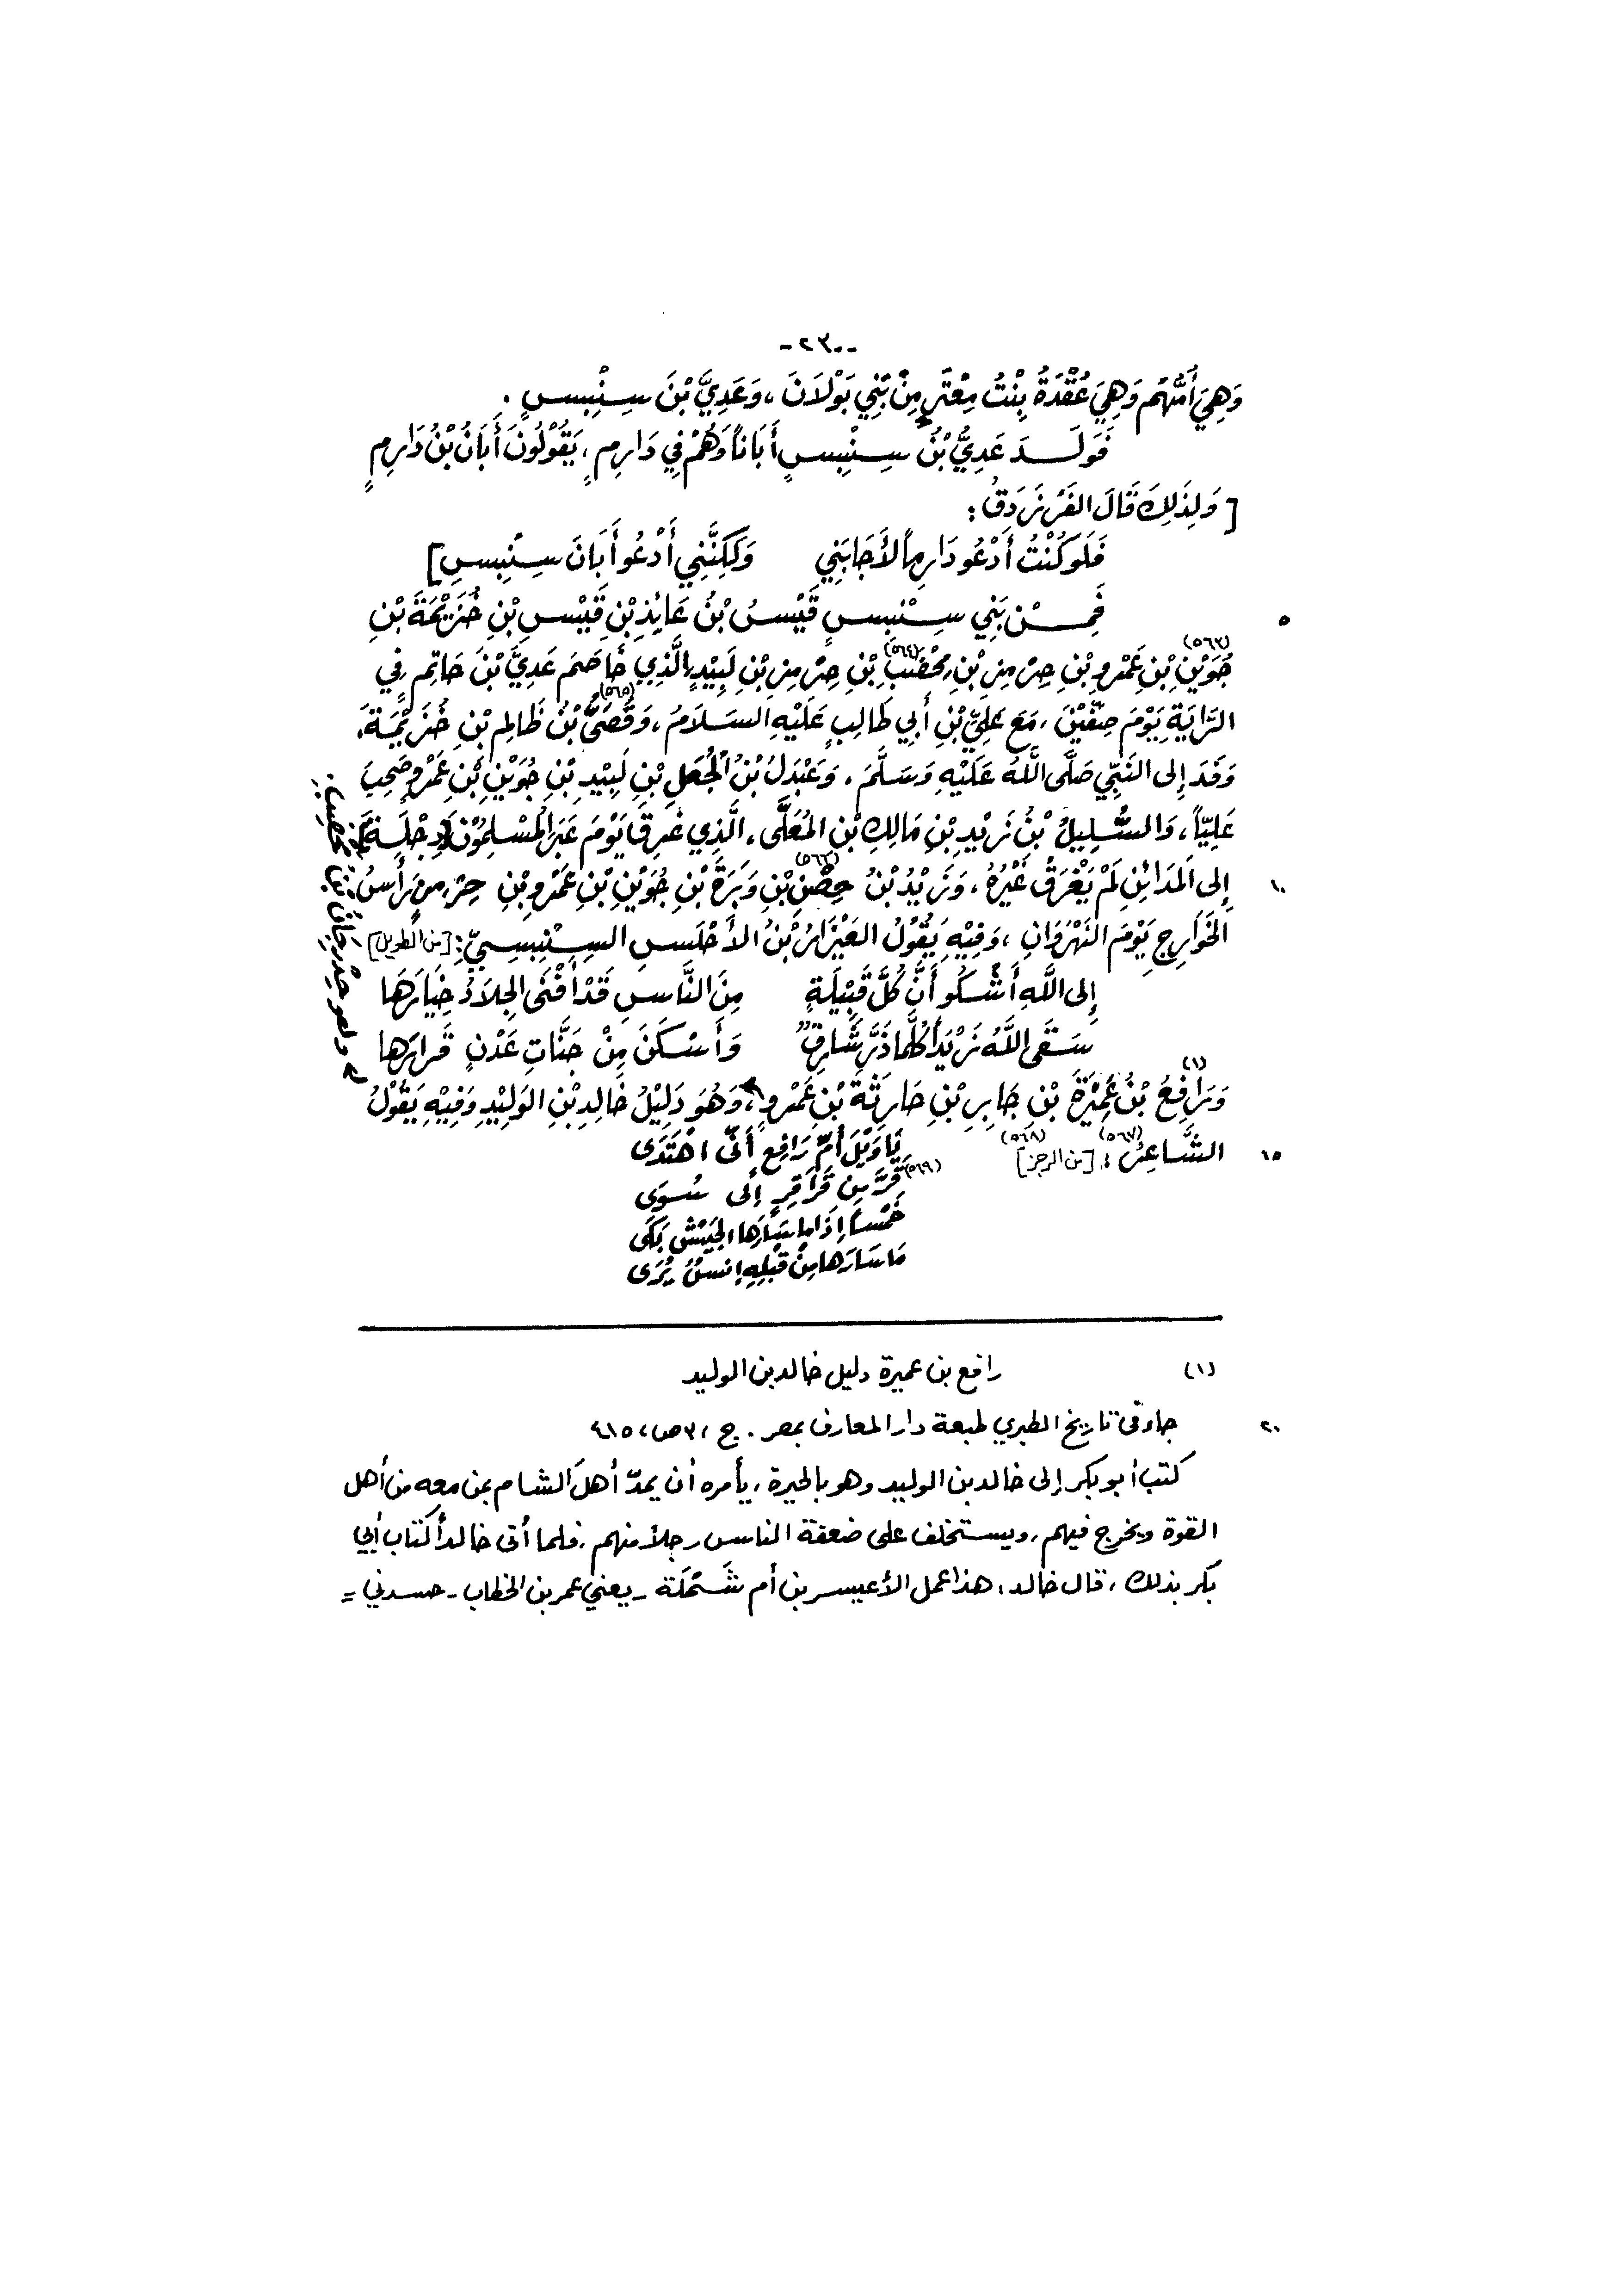 -٢٣٠-
وَهِيَ أُمُّهُم وَهِيَ عُقْدَةُ بِنْتُ مِعْتَرٍ مِنْ بَنِي بَوْلَانَ ، وَعَدِيَّ بْنَ سِنْبِسٍ .
فَوَلَدَ عَدِيُّ بْنُ سِنْبِسٍ أَبَاناً وَهُمْ فِي دَارِمٍ ، يَقُوْلُونَ أَبَانُ بْنُ دَارِمٍ
[ وَلِذَلِكَ قَالَ الفَرَزْدَقُ :
فَلَو كُنْتُ أَدْعُو دَارِماً لأَجَابَنِي وَلَكِنَّنِي أَدْعُو أَبَانَ سِنْبِسِ ]
٥ فَمِنْ بَنِي سِنْبِسٍ قَيْسُ بْنُ عَائِذِ بْنِ قَيْسِ بْنِ خُزَيْمَةَ بْنِ
جُوَيْنِ (٥٦٣) بْنِ عَمْرِو بْنِ حِرْمِزِ بْنِ مِحْضَبِ (٥٦٤) بْنِ حِرْمِزِ بْنِ لَبِيْدٍ الَّذِي خَاصَمَ عَدِيَّ بْنَ حَاتِمٍ فِي
الرَّايَةِ يَوْمَ صِفِّيْنَ ، مَعَ عَلِيِّ بْنِ أَبِي طَالِبٍ عَلَيْهِ السَلَامُ ، وَقُصَيُّ (٥٦٥) بْنُ ظَالِمِ بْنِ خُزَيْمَةَ ،
وَفَدَ إِلى النَبِيِّ صَلَّى اللَّهُ عَلَيْهِ وَسَلَّمَ . وَعَبْدَلُ بْنُ الْجُعَلِ بْنِ لَبِيْدِ بْنِ جُوَيْنِ بْنِ عَمْرٍو صَحِبَ
عَلِيّاً ، وَالسُّلِيلُ بْنُ زَيْدِ بْنِ مَالِكِ بْنِ المُعَلَّى ، الَّذِي غَرِقَ يَوْمَ عَبَرَ المُسْلِمُوْنَ دِجْلَةَ
١٠ إِلى المَدَائِنِ لَمْ يَغْرَقْ غَيْرُهُ ، وَزَيْدُ بْنُ حِصْنِ (٥٦٦) بْنِ وَبَرَةَ بْنِ جُوَيْنِ بْنِ عَمْرِو بْنِ حِرْمِزٍ رَأْسُ
الخَوَارِجِ يَوْمَ النَهْرَوَانِ ، وَفِيْهِ يَقُوْلُ العَيْزَارُ بْنُ الأَخْنَسِ السِنْبِسِيُّ : [من الطويل]
إِلى اللَّهِ أَشْكُو أَنَّ كُلَّ قَبِيْلَةٍ مِنَ النَّاسِ قَدْ أَفْنَى الجِلَادُ خِيَارَهَا
سَقَى اللَّهُ زَيْداً كُلَّمَا ذَرَّ شَارِقٌ وَأَسْكَنَ مِنْ جَنَّاتِ عَدْنٍ قَرَارَهَا
وَرَافِعُ (١) بْنُ عَمِيْرَةَ بْنِ جَابِرِ بْنِ حَارِثَةَ بْنِ عَمْرٍو ، وَهُوَ دَلِيْلُ خَالِدِ بْنِ الوَلِيْدِ وَفِيْهِ يَقُوْلُ
١٥ الشَّاعِرُ (٥٦٧) : [من الرجز] (٥٦٨) يَا وَيْلَ أُمِّ رَافِعٍ أَنَّى اهْتَدَى
(٥٦٩) قَرَّ مِن قُرَاقِرٍ إِلى سُوَى
خَمْساً إِذَا مَا سَارَهَا الجَيْشُ بَكَى
مَا سَارَهَا مِنْ قَبْلِهِ إِنسٌ يُرَى
(١) رافع بن عميرة دليل خالد بن الوليد
٢٠ جاء في تاريخ الطبري طبعة دار المعارف بمصر . ج ، ٣ ص ، ٤١٥
كتب أبو بكر إلى خالد بن الوليد وهو بالحيرة ، يأمره أن يمدّ أهل الشام بمن معه من أهل
القوة ويخرج فيهم ، ويستخلف على ضعفة الناس رجلاً منهم ، فلما أتى خالداً كتاب أبي
بكر بذلك ، قال خالد : هذا عمل الأعيسر بن أم شَمْلَة - يعني عمر بن الخطاب - حسدني =